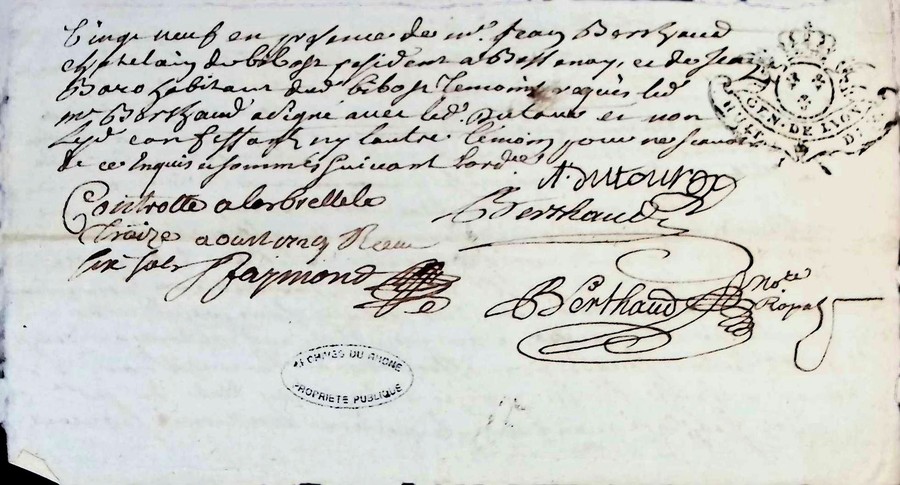 Vingt neuf en presence de mr. Jean Berthaud
chatelain de bibost resident a Bessenay, et de Jean
Baro habitant dud. bibost temoins requis led.
mr Berthaud a signé avec led. Dutour et non
led. confessant ny l'autre temoin pour ne scavoir
de ce Enquis et sommés suivant lord.ce
A. dutour
Berthaud
Controllé a larbresle le
treize aoust 1729 Receu
six sols Raymond
Berthaud No.re
Royal
GEN. DE LYON
ARCHIVES DU RHONE
PROPRIETE PUBLIQUE